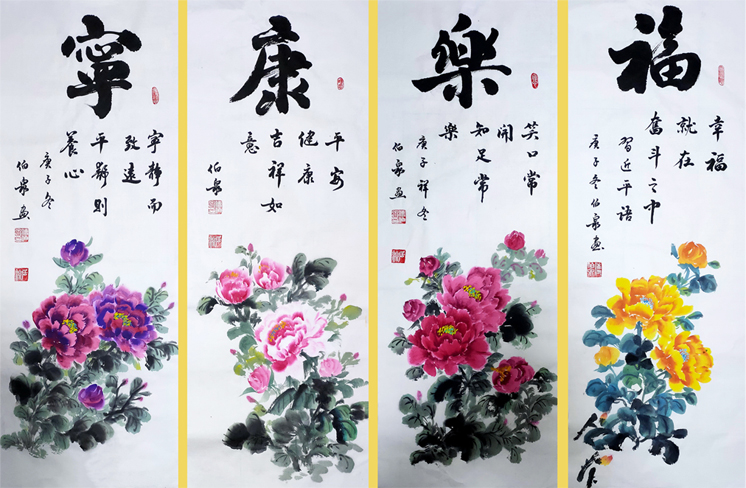 福
幸福
就在
奮斗之中
習近平語
庚子冬伯泉画
樂
笑口常
開
知足常
樂
庚子祥冬
伯泉画
康
平安
健康
吉祥如
意
伯泉
寧
寧静而
致遠
平静則
養心
庚子冬
伯泉画